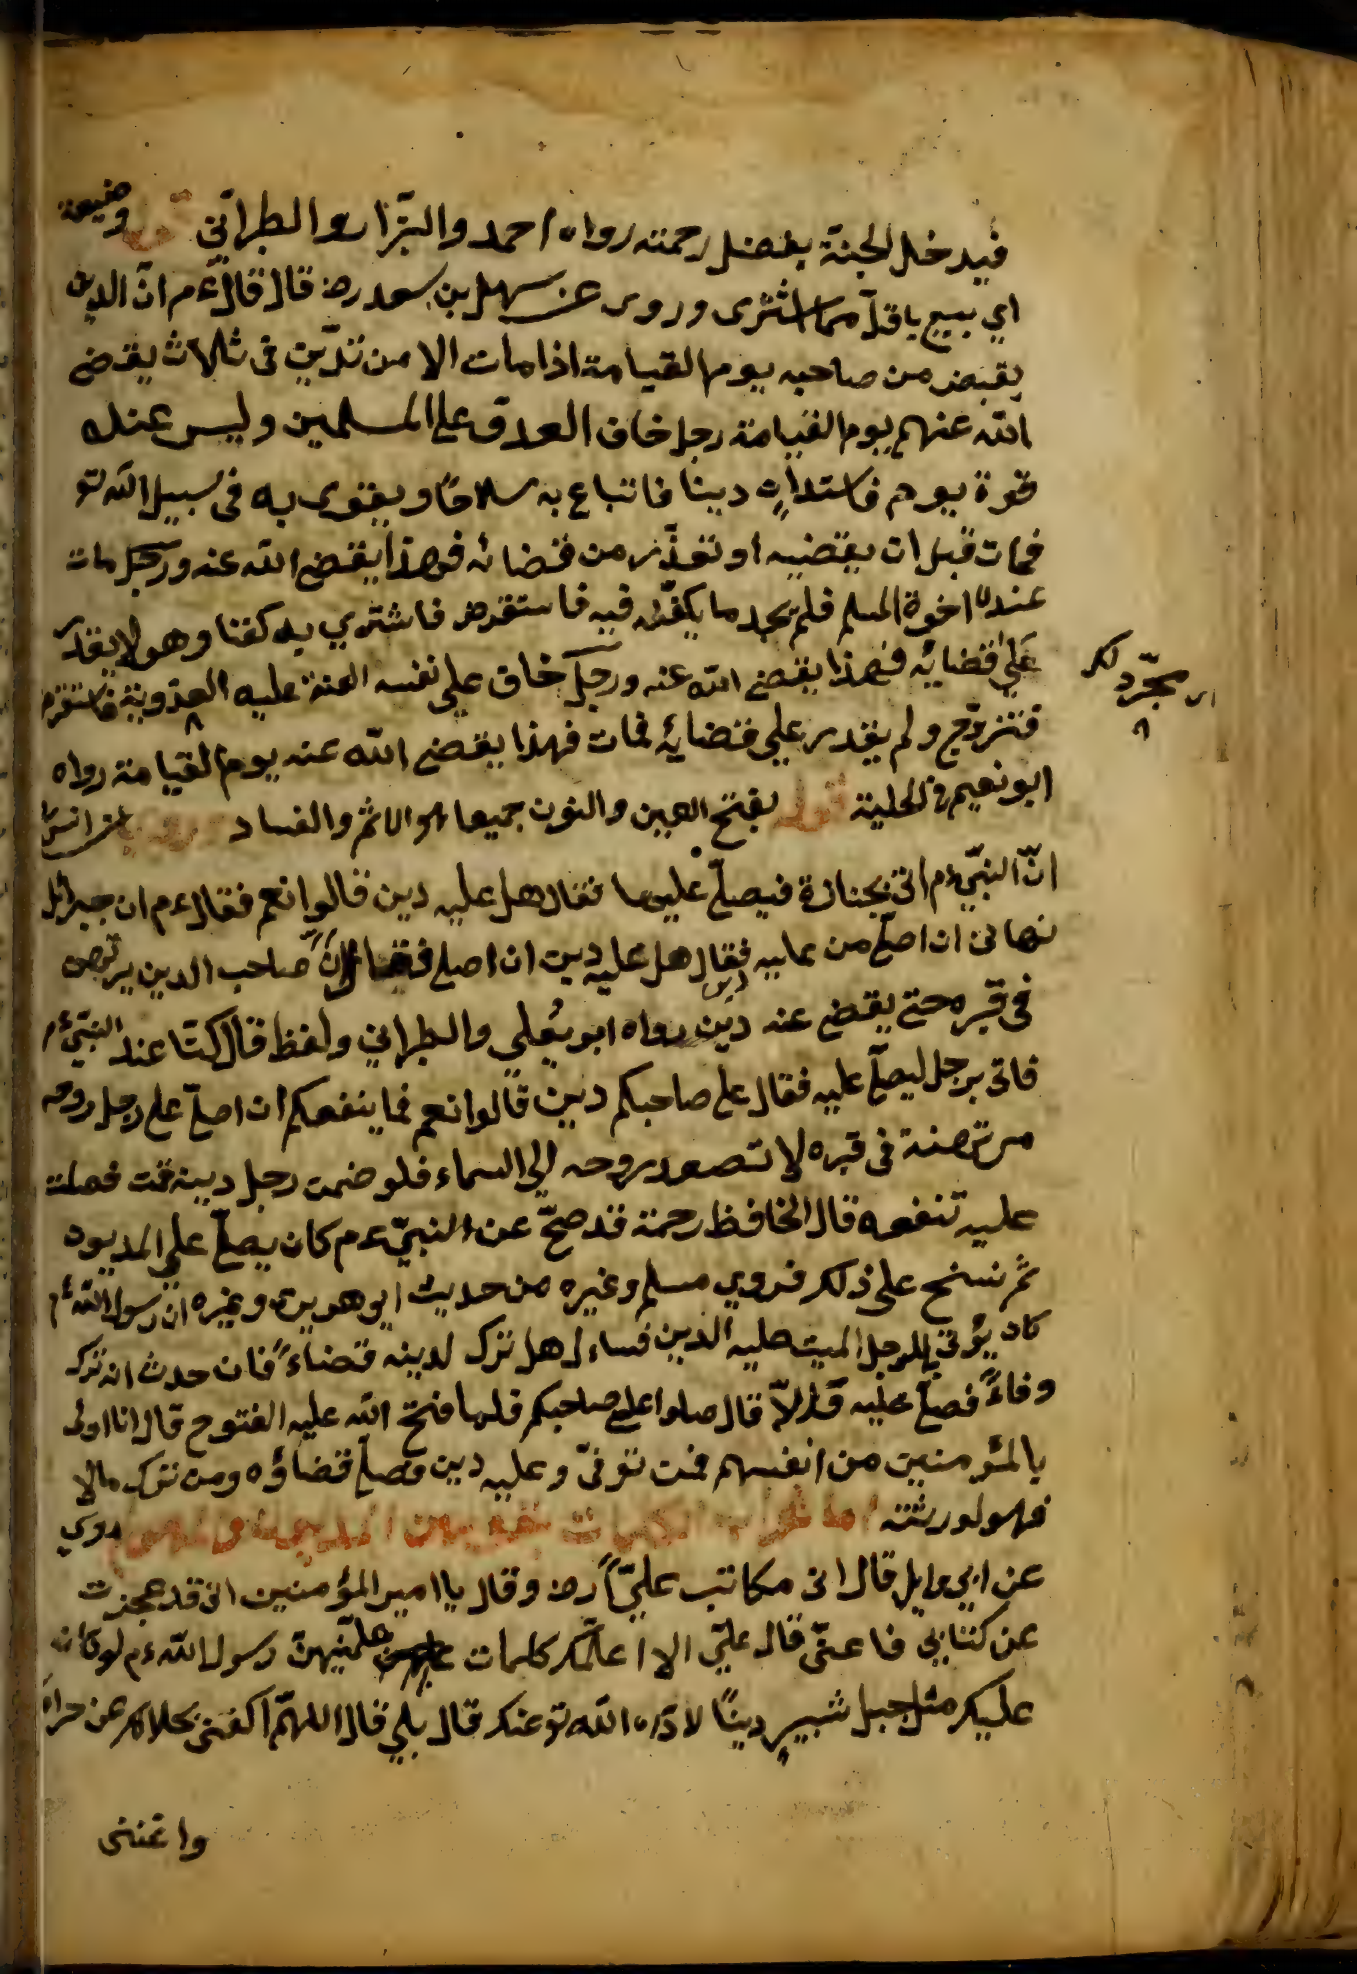 فيدخل الجنّة بفضل رحمته رواه احمد والبزّار والطبرانّي قوله وضيعة
اي يبيع باقلّ مما اشترى وروى عن سهل بن سعد رض قال قال ءم انّ الدين
يقبض من صاحبه يوم القيامة اذا مات الا من تديّن في ثلاث يقض
الله عنهم يوم القيامة رجل خاف العدوّ على المسلمين وليس عنده
قوة يوم فاستدان دينا فابتاع به سلاحًا ويقوى به في سبيل الله تع
فمات قبل ان يقضيه او تعذّر من قضائه فهذا يقضي الله عنه ورجل مات
عنده اخوة المسلم فلم يجد ما يكفّنه فيه فاستقرض فاشتري به كفنا وهو لا يقدر
على قضائه فهذا يقضي الله عنه ورجل خاف على نفسه العنة عليه العذوبة فاستقرض
فتزوّج ولم يقدر على قضائه فمات فهذا يقضي الله عنه يوم القيامة رواه
ابو نعيم في الحلية قوله بفتح العين والنون جميعا هو الاثم والفساد عن انس
انّ النبّي ءم اتى بجنازة فيصلّ عليها فقال هل عليه دين قالوا نعم فقال ءم ان جبرائل
نهانى ان اصلّ من عليه فقال هل عليه دين ان اصل فقال انّ صاحب الدين يرتهن
في قبره حتى يقض عنه دين رواه ابو يعلي والطبراني ولفظ قال كنّا عند النبّي ءم
فاتى برجل ليصلّ عليه فقال على صاحبكم دين قالوا نعم فما ينفعكم ان اصلّ على رجل روحه
مرتهنة في قبره لا تصعد روحه الي السماء فلو ضمن رجل دينه قمت فصلت
عليه تنفعه قال الحافظ رحمة قد صحّ عن النبّي ءم كان يصلّ على المديون
ثم نسخ على ذلك فروي مسلم وغيره من حديث ابو هريرة وغيره ان رسول الله ءم
كان يؤتى بالرجل الميت عليه الدين فساءل هل ترك لدينه قضاءً فان حدث انه ترك
وفاءً فصلّ عليه قالا لاّ قال صلوا على صاحبكم فلما فتح الله عليه الفتوح قال انا اولى
بالمؤمنين من انفسهم فمن توفىّ وعليه دين فصلّ قضاؤه ومن ترك مالا
فهو لورثته روي
عن ابي وايل قال اتى مكاتب عليًّا رض وقال يا امير المؤمنين انى قد عجزت
عن كتابي فاعنّي قال علىّ الا اعلّمك كلمات علّمنيهنّ رسول الله ءم لو كان
عليك مثل جبل شبير دينًا لاداه الله تع عنك قال بلى قال اللهمّ اكفني بحلالك عن حرامك
واغننى
مجرّد لك